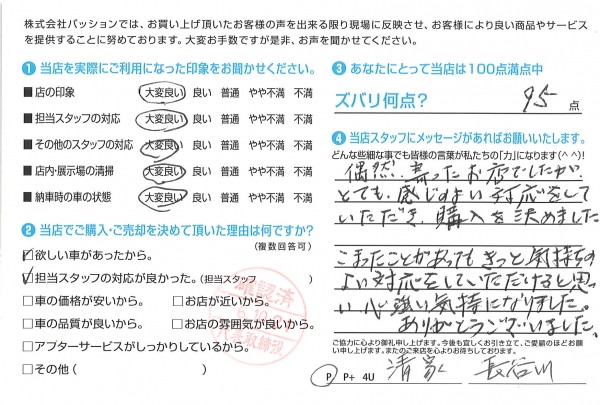 株式会社パッションでは、お買い上げ頂いたお客様の声を出来る限り現場に反映させ、お客様により良い商品やサービス
を提供することに努めております。大変お手数ですが是非、お声を聞かせてください。
① 当店を実際にご利用になった印象をお聞かせください。
■ 店の印象 大変良い 良い 普通 やや不満 不満
■ 担当スタッフの対応 大変良い 良い 普通 やや不満 不満
■ その他のスタッフの対応 大変良い 良い 普通 やや不満 不満
■ 店内・展示場の清掃 大変良い 良い 普通 やや不満 不満
■ 納車時の車の状態 大変良い 良い 普通 やや不満 不満
② 当店でご購入・ご売却を決めて頂いた理由は何ですか?
(複数回答可)
☑欲しい車があったから。
☑担当スタッフの対応が良かった。(担当スタッフ )
□車の価格が安いから。 □お店が近いから。
□車の品質が良いから。 □お店の雰囲気が良いから。
□アフターサービスがしっかりしているから。
□その他 ( )
確認済
③ あなたにとって当店は100点満点中
ズバリ何点? 95 点
④ 当店スタッフにメッセージがあればお願いいたします。
どんな些細な事でも皆様の言葉が私たちの「力」になります(^^)!
偶然、寄ったお店でしたが
とても、感じのよい対応をして
いただき、購入を決めました
こまったことがあっても きっと気持ちの
よい対応をしていただけると思
い心強い気持になりました。
ありがとうございました。
ご協力に心より御礼申し上げます。今後も宜しくお引き立て、ご愛顧のほどお願
い申し上げます。またのご来店を心よりお待ちしております。
P P+ 4U 清家 長谷川